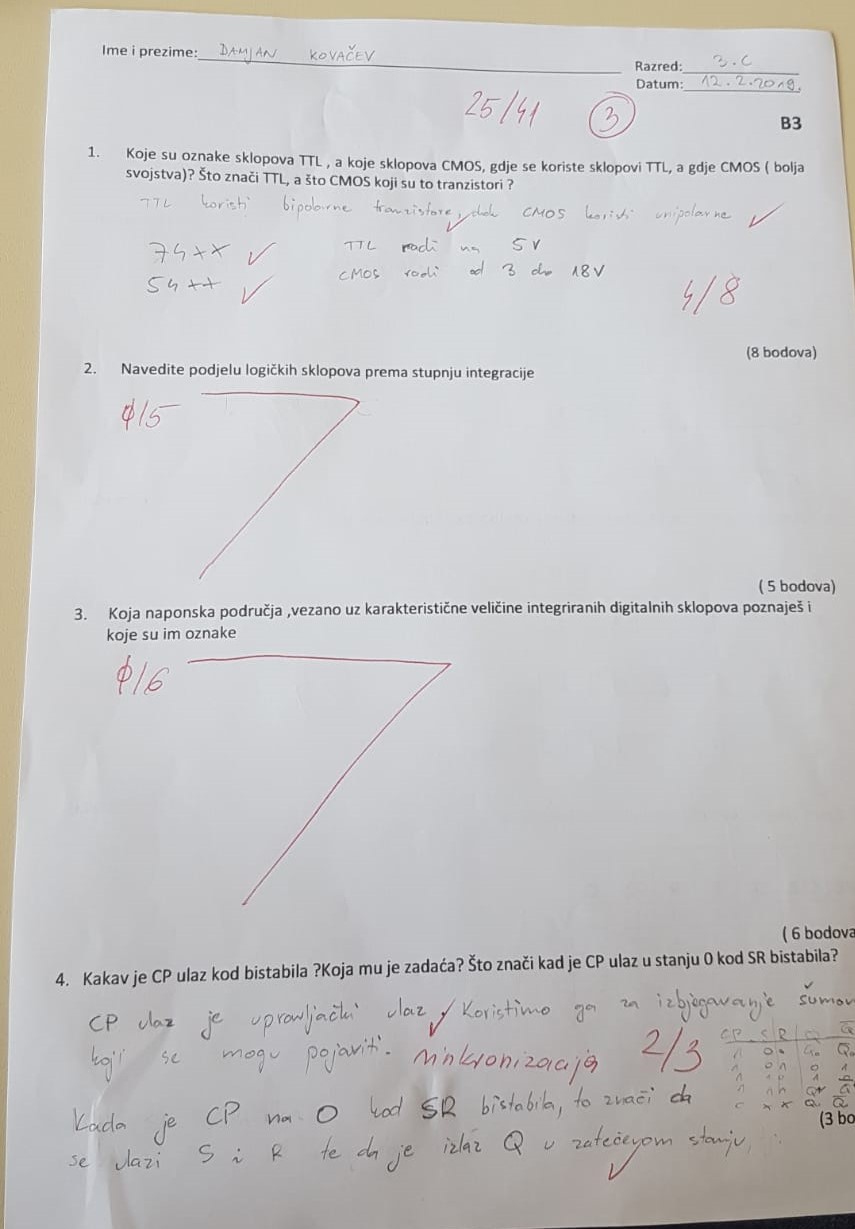 Ime i prezime: DAMJAN KOVAČEV
Razred: 3.C
Datum: 12.2.2019.
25/41 3
B3
1. Koje su oznake sklopova TTL , a koje sklopova CMOS, gdje se koriste sklopovi TTL, a gdje CMOS ( bolja
svojstva)? Što znači TTL, a što CMOS koji su to tranzistori ?
TTL koristi bipolarne tranzistore, dok CMOS koristi unipolarne
74xx TTL radi na 5V
54xx CMOS radi od 3 do 18V
4/8
(8 bodova)
2. Navedite podjelu logičkih sklopova prema stupnju integracije
0/5
( 5 bodova)
3. Koja naponska područja ,vezano uz karakteristične veličine integriranih digitalnih sklopova poznaješ i
koje su im oznake
0/6
( 6 bodova
4. Kakav je CP ulaz kod bistabila ?Koja mu je zadaća? Što znači kad je CP ulaz u stanju 0 kod SR bistabila?
CP ulaz je upravljački ulaz Koristimo ga za izbjegavanje šumov
koji se mogu pojaviti. 2/3
CP S R Q Q̅
Kada je CP na 0 kod SR bistabila, to znači da
(3 bo
se ulazi S i R te da je izlaz Q u zatečenom stanju